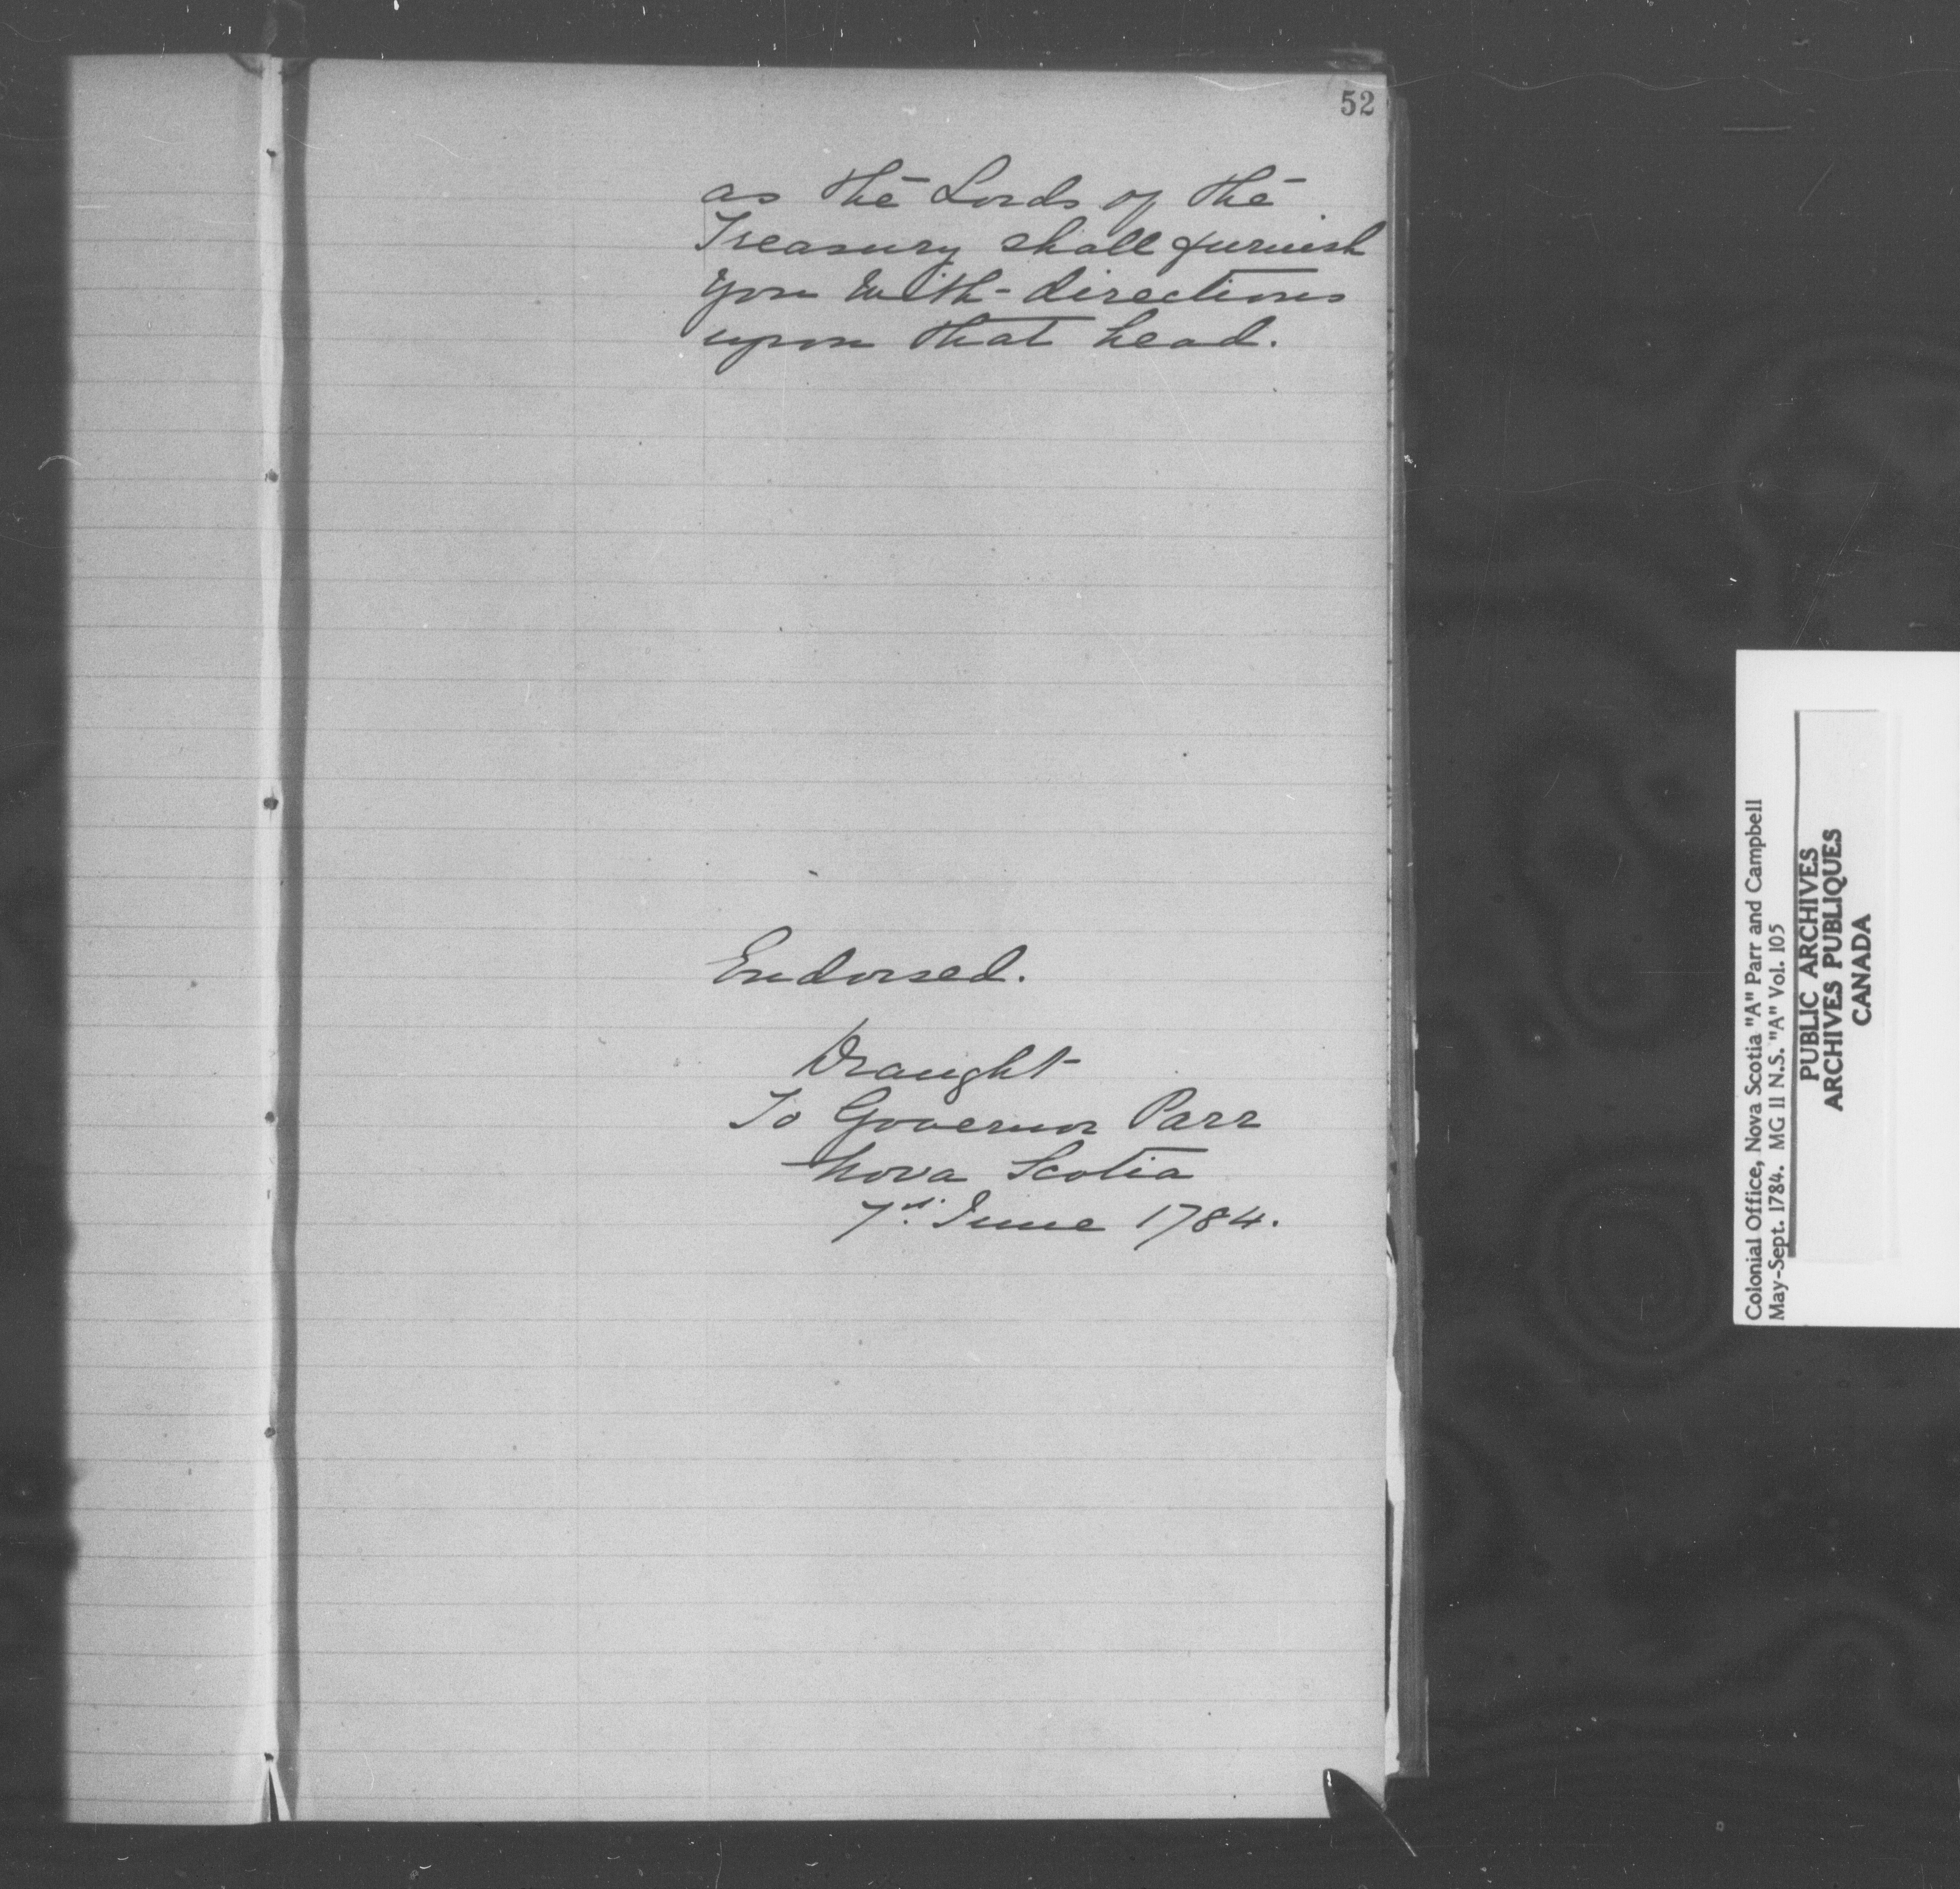 52
as the Lords of the
Treasury shall furnish
you with directions
upon that head.
Endorsed.
Draught
To Governor Parr
Nova Scotia
June 1784.
Colonial Office, Nova Scotia "A" Parr and Campbell
May-Sept. 1784. MG 11 N.S. "A" Vol. 105
PUBLIC ARCHIVES
ARCHIVES PUBLIQUES
CANADA